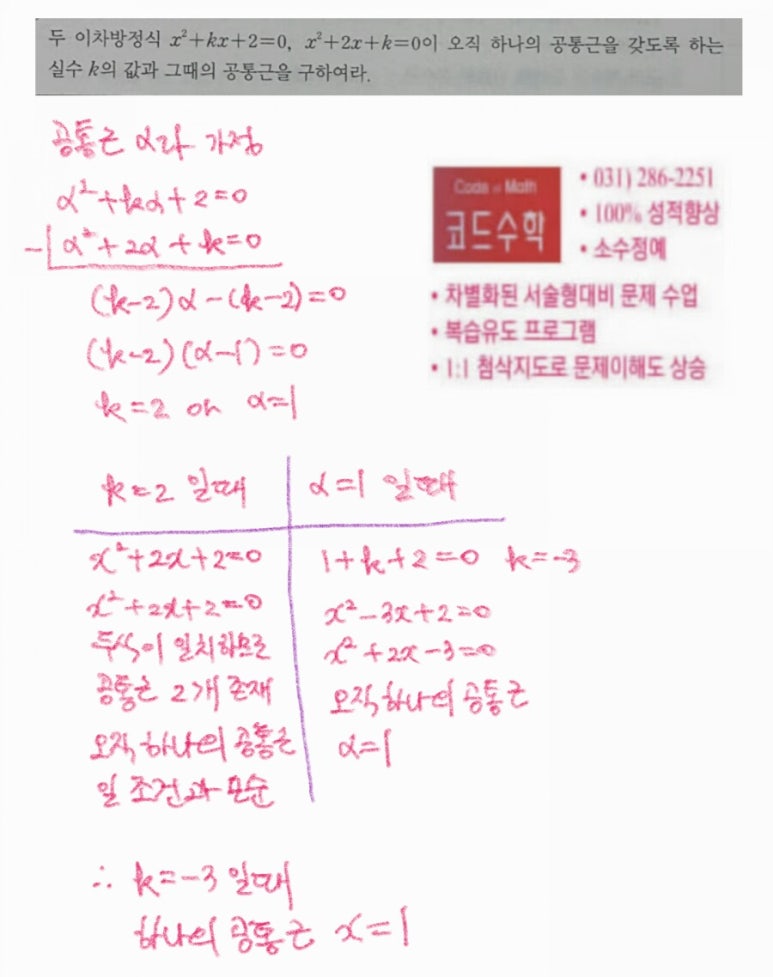 두 이차방정식 x²+kx+2=0, x²+2x+k=0이 오직 하나의 공통근을 갖도록 하는
실수 k의 값과 그때의 공통근을 구하여라.
공통근 α라 가정
α²+kα+2=0
-α²+2α+k=0
(k-2)α-(k-2)=0
(k-2)(α-1)=0
k=2 or α=1
Code of Math
코드수학
• 031) 286-2251
• 100% 성적향상
• 소수정예
• 차별화된 서술형대비 문제 수업
• 복습유도 프로그램
• 1:1 첨삭지도로 문제이해도 상승
k=2 일때
x²+2x+2=0
x²+2x+2=0
두식이 일치하므로
공통근 2개 존재
오직 하나의 공통근
일 조건과 모순
α=1 일때
1+k+2=0 k=-3
x²-3x+2=0
x²+2x-3=0
오직 하나의 공통근
α=1
∴ k=-3 일때
하나의 공통근 x=1